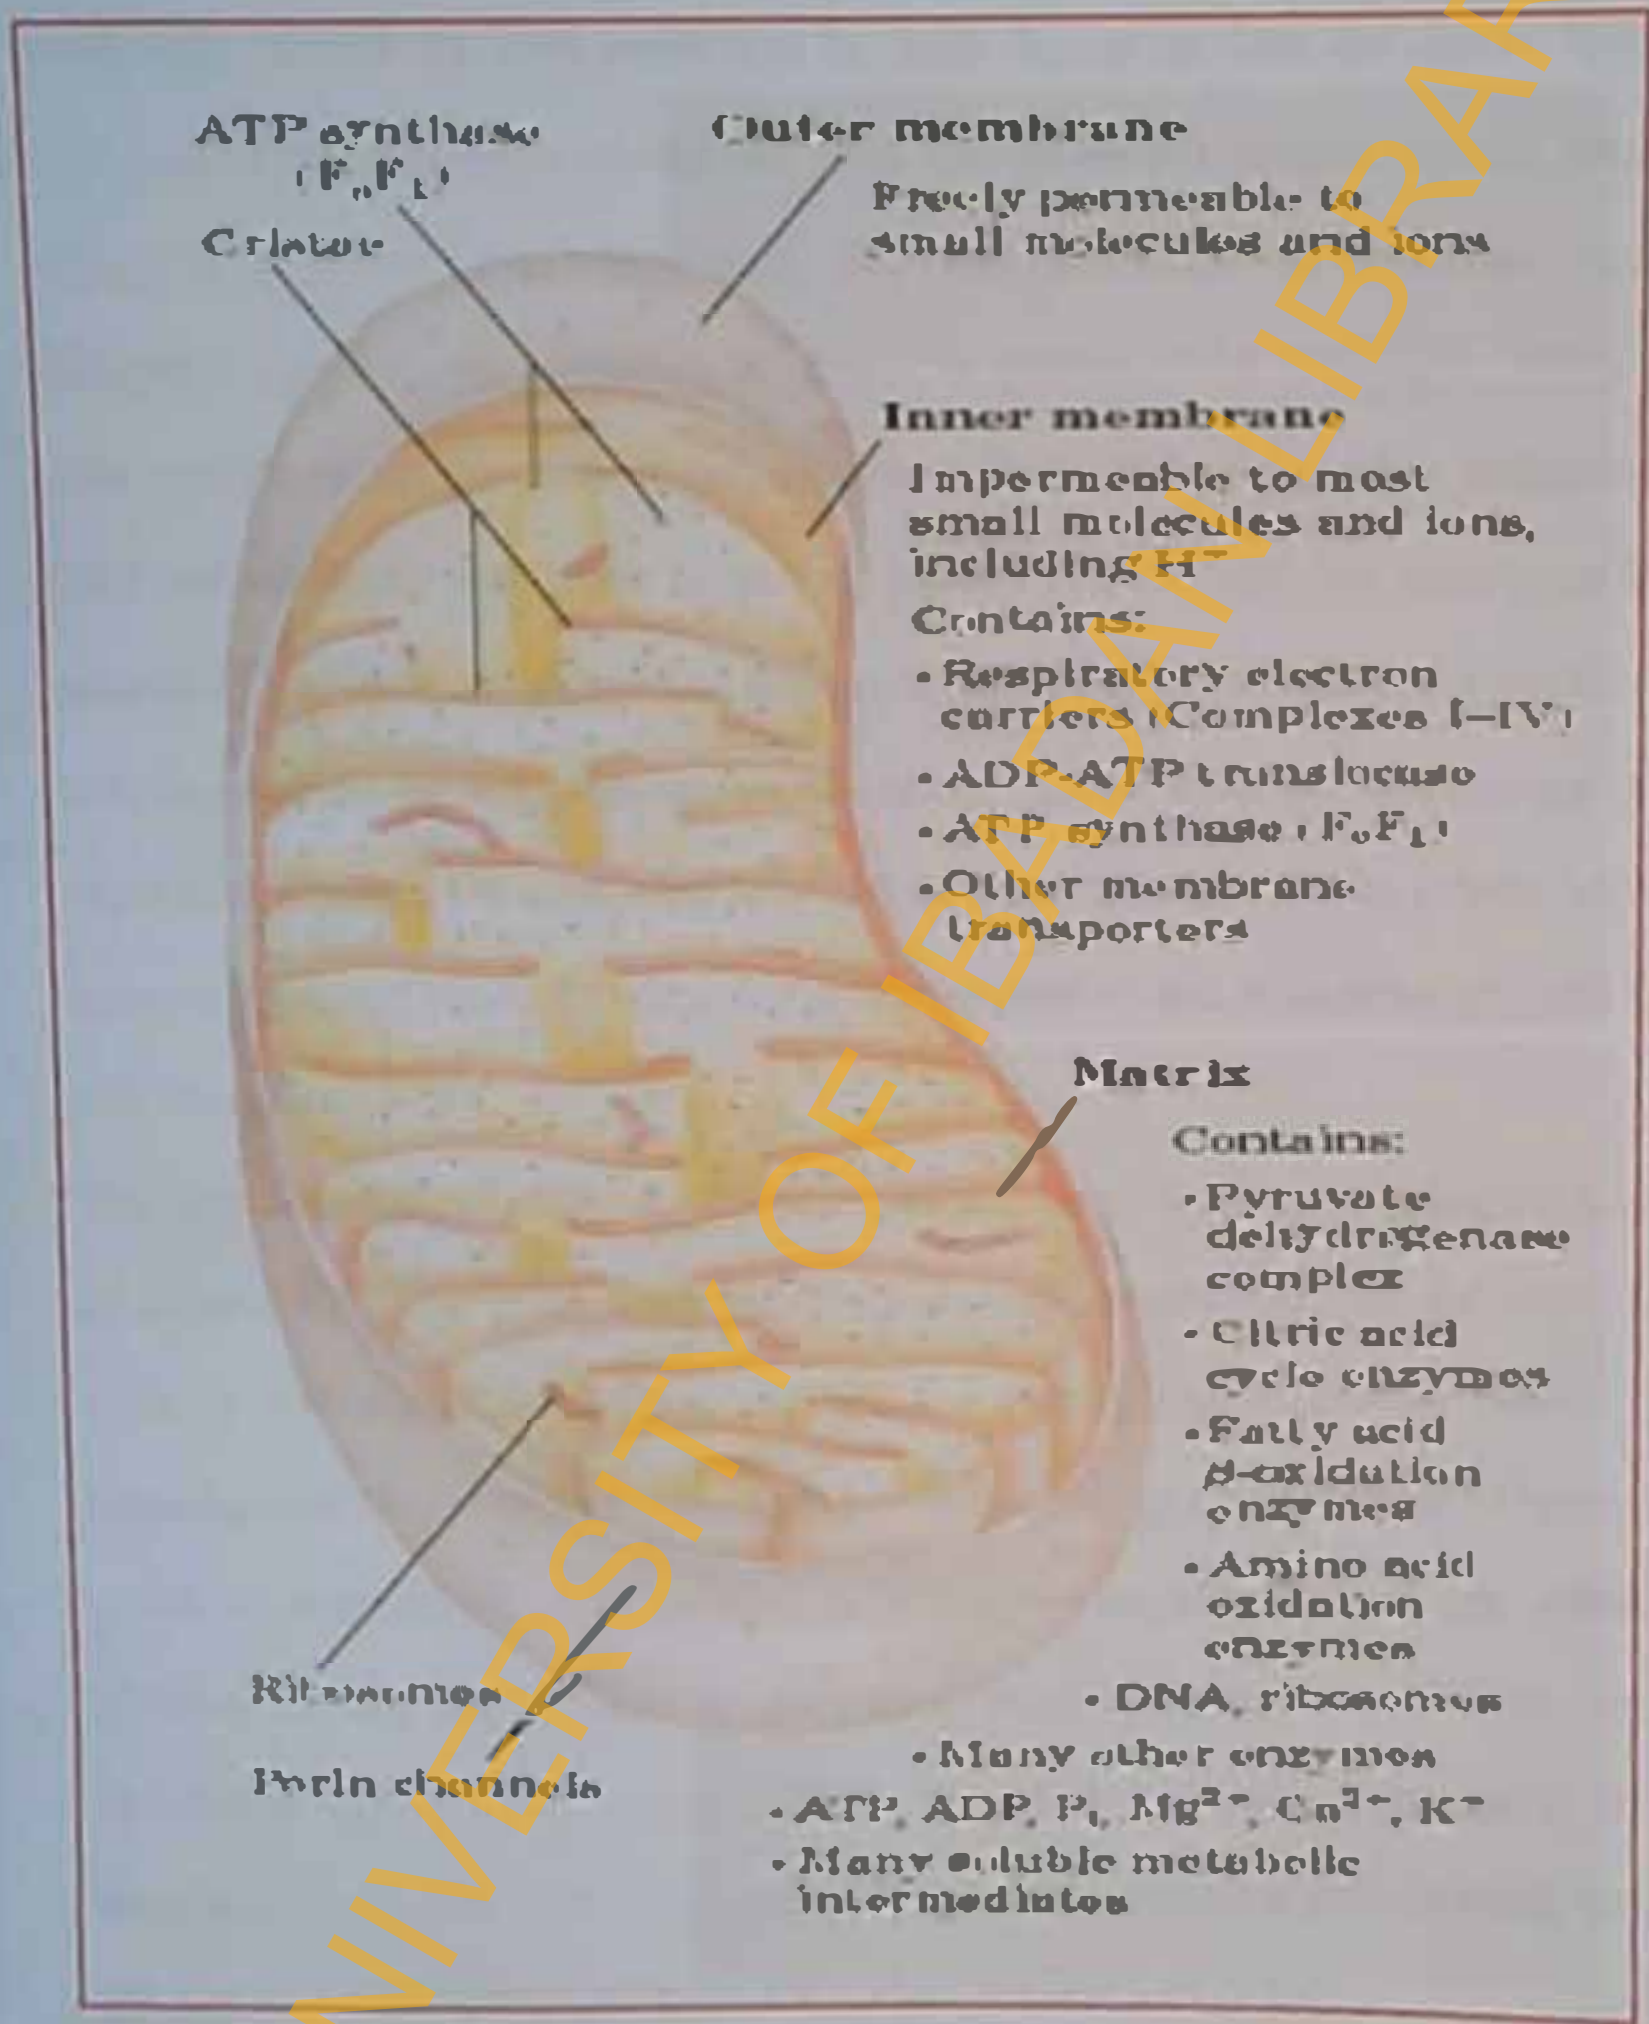 ATP synthase
(FoF1)
Cristae
Outer membrane
Freely permeable to
small molecules and ions
Inner membrane
Impermeable to most
small molecules and ions,
including H+
Contains:
• Respiratory electron
carriers (Complexes I–IV)
• ADP-ATP translocase
• ATP synthase (FoF1)
• Other membrane
transporters
Matrix
Contains:
• Pyruvate
dehydrogenase
complex
• Citric acid
cycle enzymes
• Fatty acid
β-oxidation
enzymes
• Amino acid
oxidation
enzymes
• DNA, ribosomes
• Many other enzymes
• ATP, ADP, Pi, Mg2+, Ca2+, K+
• Many soluble metabolic
intermediates
Ribosomes
Porin channels
UNIVERSITY OF IBADAN LIBRARY